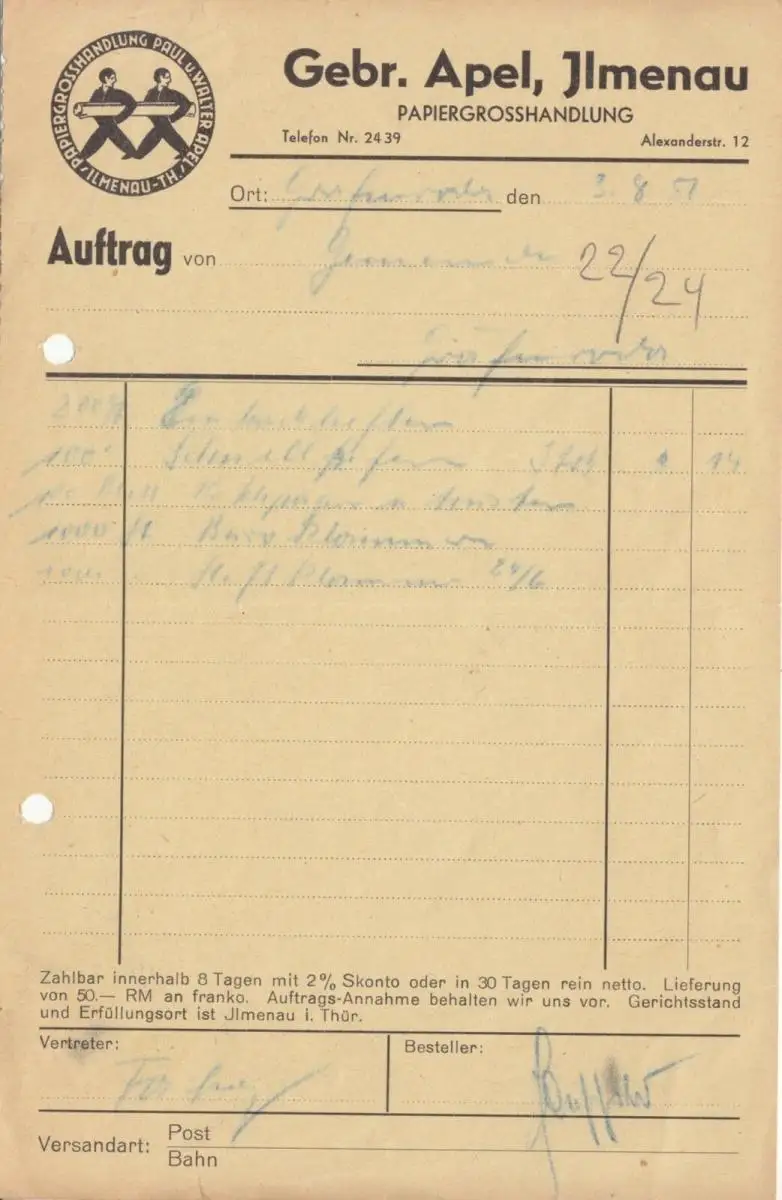 PAPIERGROSSHANDLUNG PAUL u. WALTER APEL, ILMENAU-TH.
Gebr. Apel, Jlmenau
PAPIERGROSSHANDLUNG
Telefon Nr. 2439 Alexanderstr. 12
Ort: Gräfenroda den 3.8.51
Auftrag von Gemeinde 22/24
Gräfenroda
100 Schnellhefter Stck 14
1000 St Büro Klammern
Klammern 24/6
Zahlbar innerhalb 8 Tagen mit 2% Skonto oder in 30 Tagen rein netto. Lieferung
von 50.— RM an franko. Auftrags-Annahme behalten wir uns vor. Gerichtsstand
und Erfüllungsort ist Jlmenau i. Thür.
Vertreter: Besteller:
Versandart: Post
Bahn